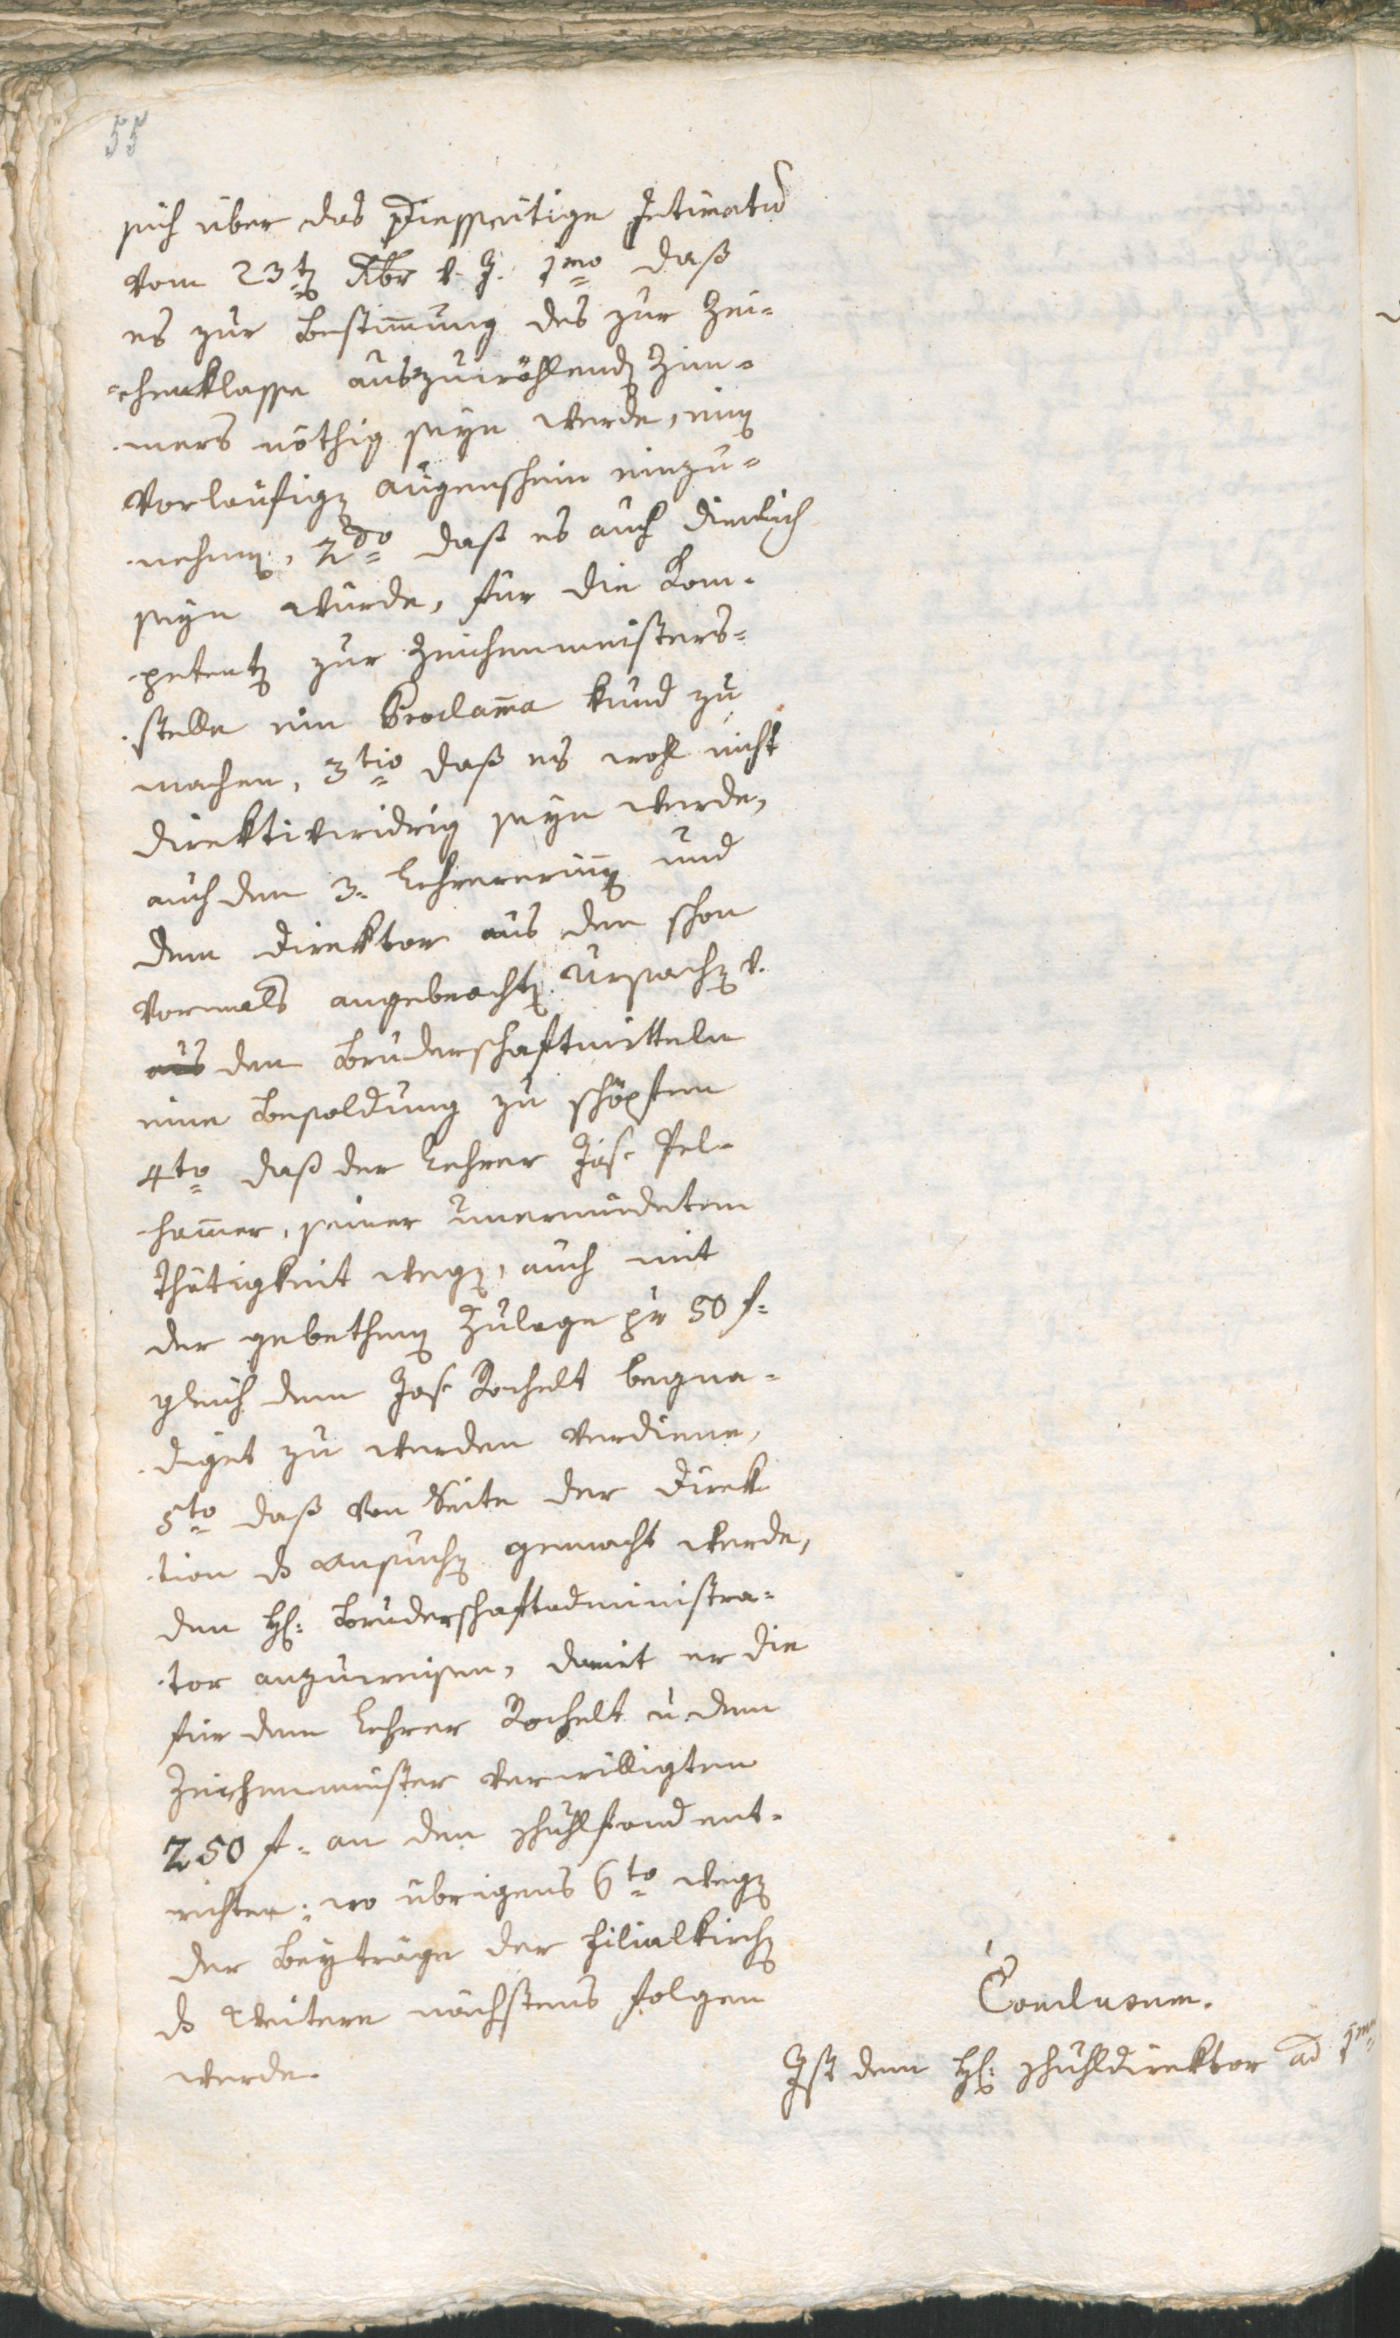 55
sich über das diesseitige Intimatu
vom 23t Xbr v. J. 1mo daß
es zur Bestimmung des zur Zei=
=chenklasse auszuwöhlend Zim=
mers nöthig seyn werde, ein
vorläufig augenschein einzu=
nehm, 2do daß es auch dienlich
seyn würde, für die Kom=
petent zur Zeichenmeisters=
stelle ein Proclama kund zu
machen, 3tio daß es wohl nicht
direktivwidrig seyn werde,
auch den 3. Lehrererin und
dem Direktor aus den schon
vormals angebracht Ursach v.
aus den Bruderschaftmitteln
eine Besoldung zu schöpfen
4to daß der Lehrer Jos. Pel=
hamer, seiner unermüdetem
Thätigkeit weg, auch mit
der gebethen Zulage pr 50 f=
gleich dem Jos. Rochelt begna=
diget zu werden verdiene,
5to daß von Seite der Direk
tion ds Ansuch gemacht werde,
den H: Bruderschaftadministra=
tor anzuweisen, damit er die
für dem Lehrer Rochelt u. dem
Zeichenmeister verwilligten
250 f= an den schuhlfond ent=
richten: wo übrigens 6to weg
der Beyträge der Filialkirch
ds Weitere nächstens folgen
werde.
Conclusum.
Ist dem H: schuhldirektor ad 1mum